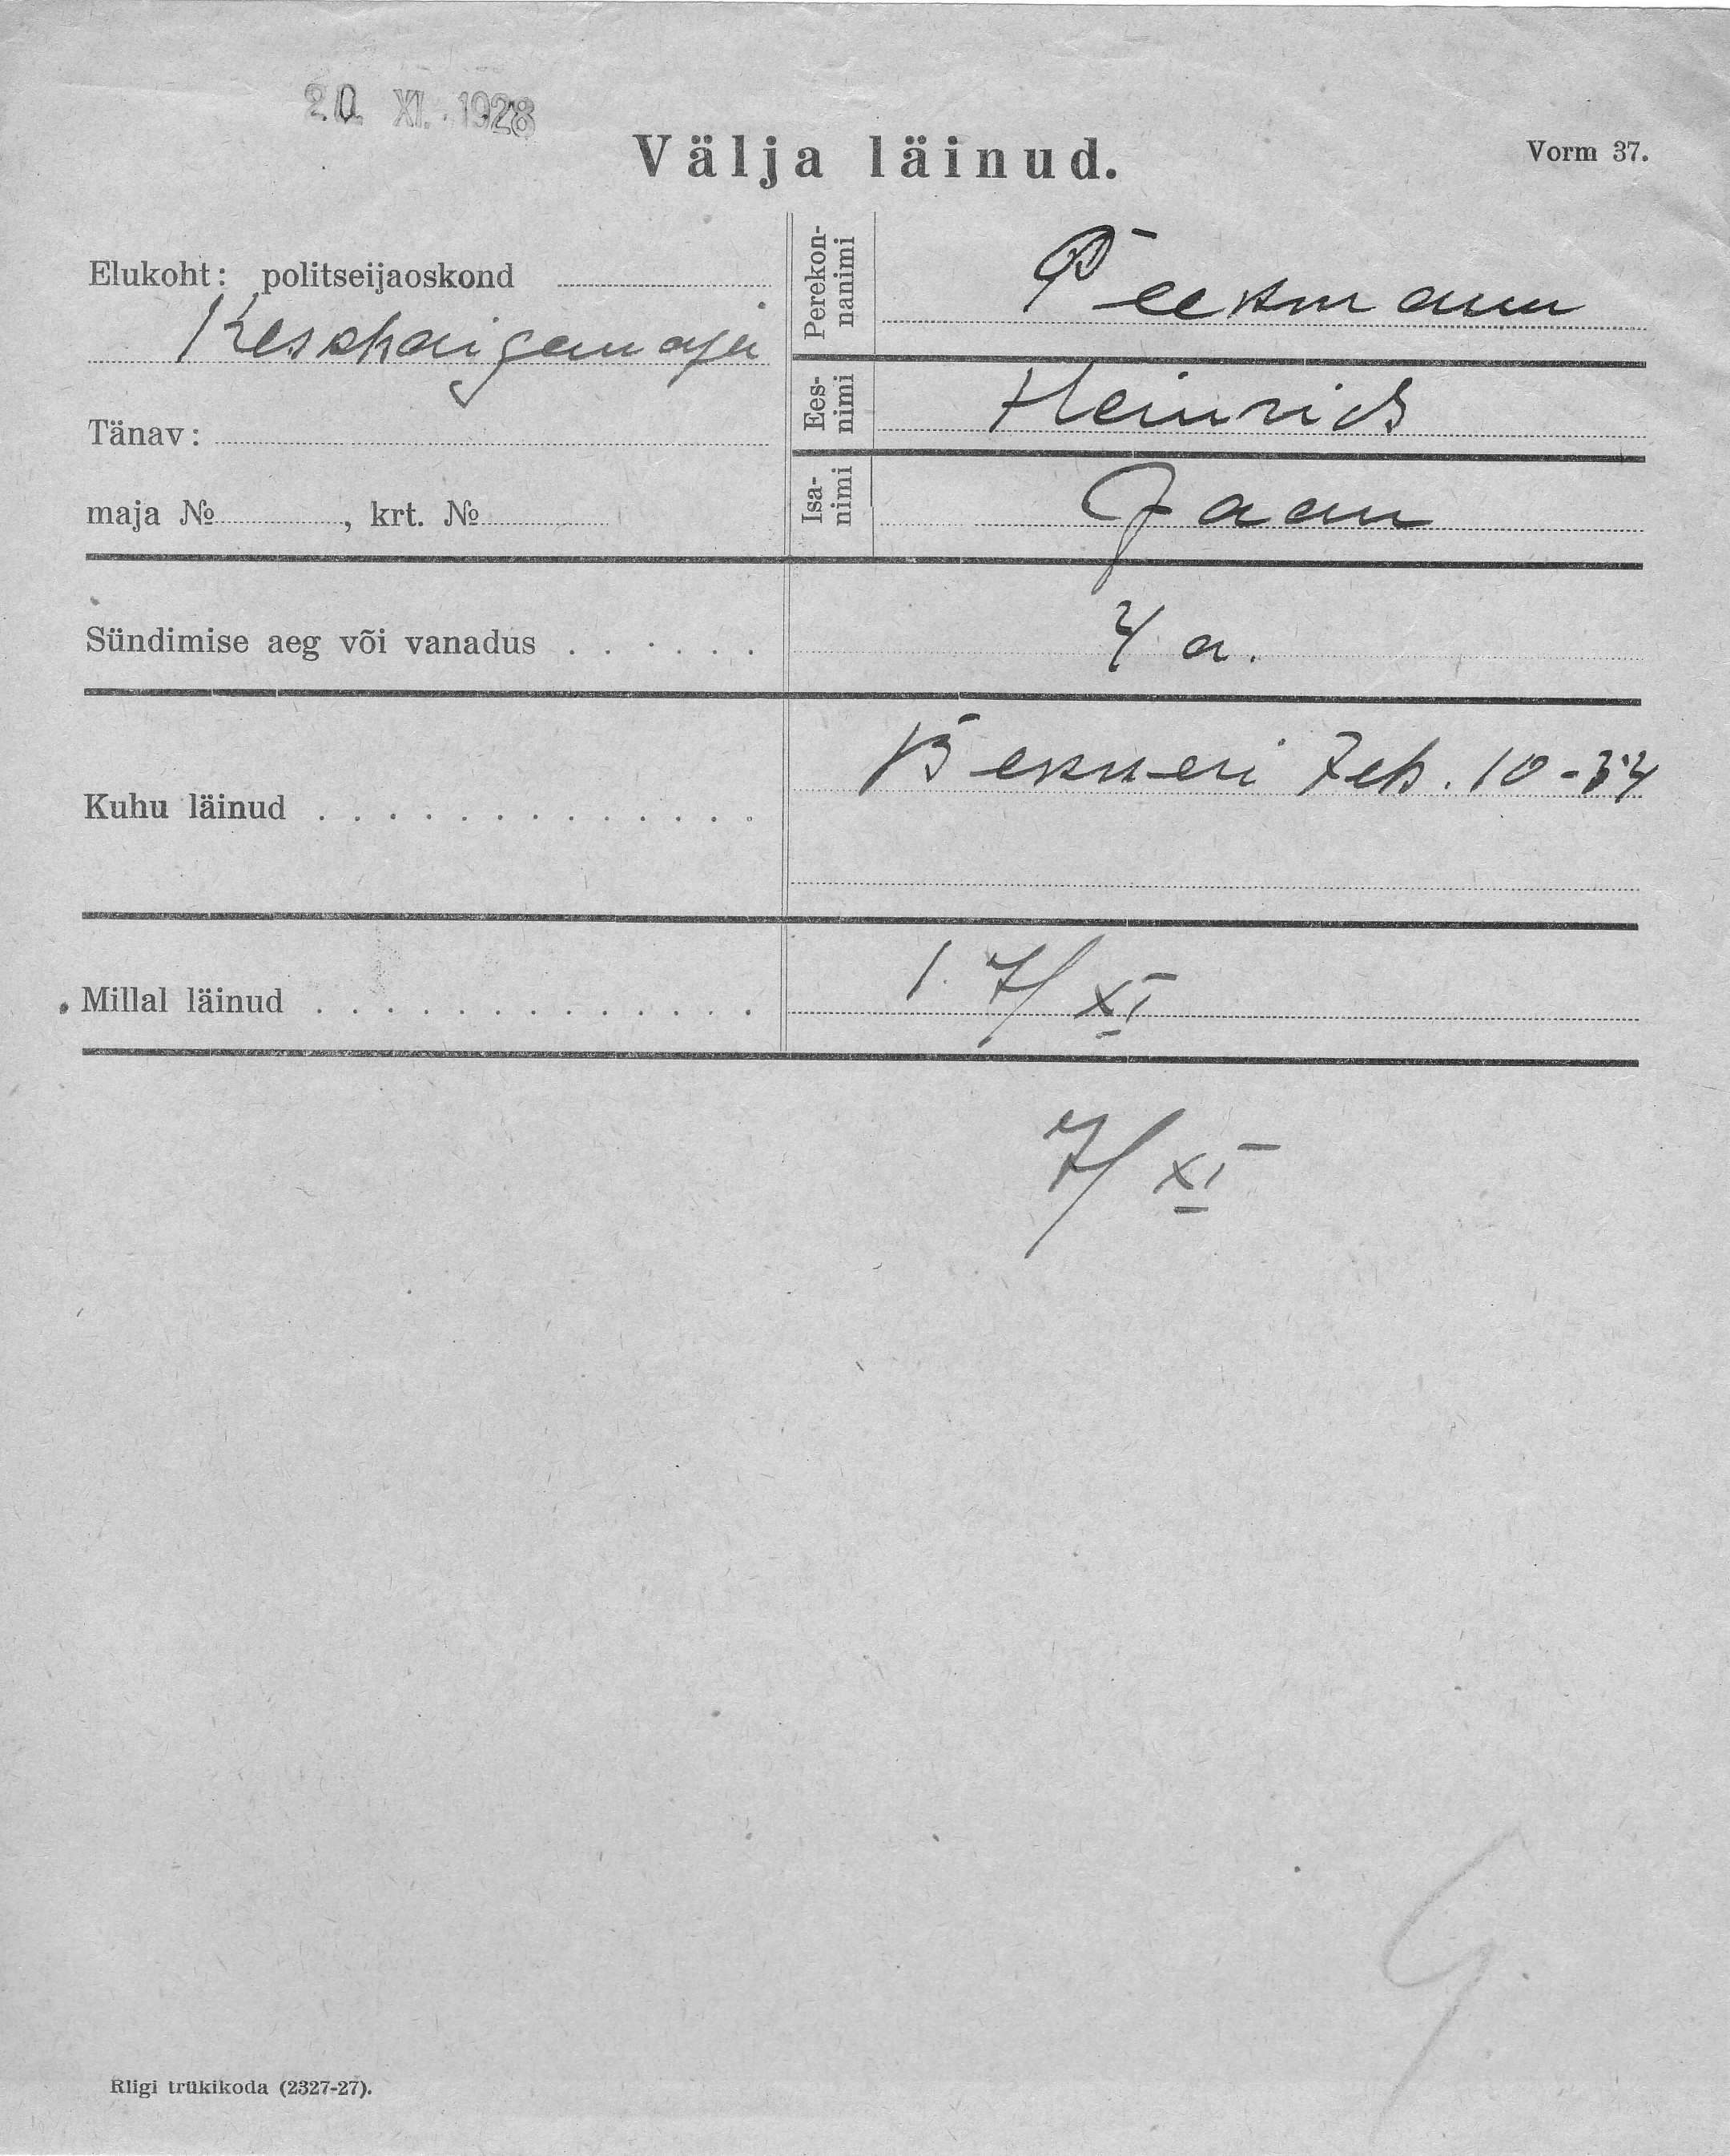 20. XI. 1928
Välja läinud.
Vorm 37.
Elukoht: politseijaoskond
Keskhaigemaja
Tänav:
maja №, krt. №
Perekon-
nanimi
Peekmann
Ees-
nimi
Heinrich
Isa-
nimi
Jaan
Sündimise aeg või vanadus . . . . . .
4 a.
Kuhu läinud . . . . . . . . . . . . .
10-34
Millal läinud . . . . . . . . . . . . .
7/XI
7/XI
Riigi trükikoda (2327-27).